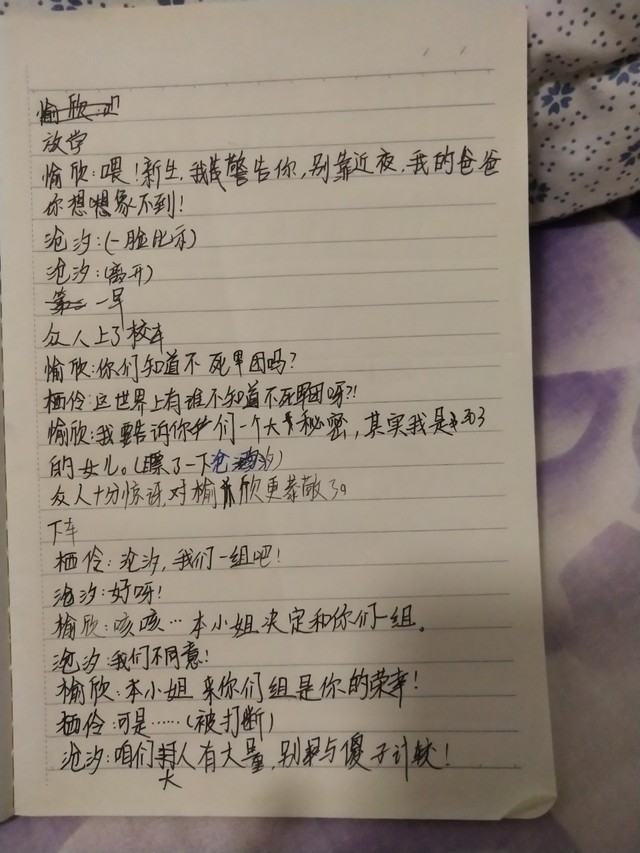 放学
愉欣:喂!新生,我警告你,别靠近夜,我的爸爸
你想想象不到!
沧汐:(一脸比示)
沧汐:(离开)
一早
众人上了校车
愉欣:你们知道不死军团吗?
栖伶:这世界上有谁不知道不死军团呀?!
愉欣:我要告诉你们一个大秘密,其实我是
的女儿。(瞟了一下沧汐)
众人十分惊讶,对榆欣更恭敬了。
下车
栖伶:沧汐,我们一组吧!
沧汐:好呀!
榆欣:咳咳…本小姐决定和你们一组。
沧汐:我们不同意!
榆欣:本小姐来你们组是你的荣幸!
栖伶:可是……(被打断)
沧汐:咱们大人有大量,别与傻子计较!